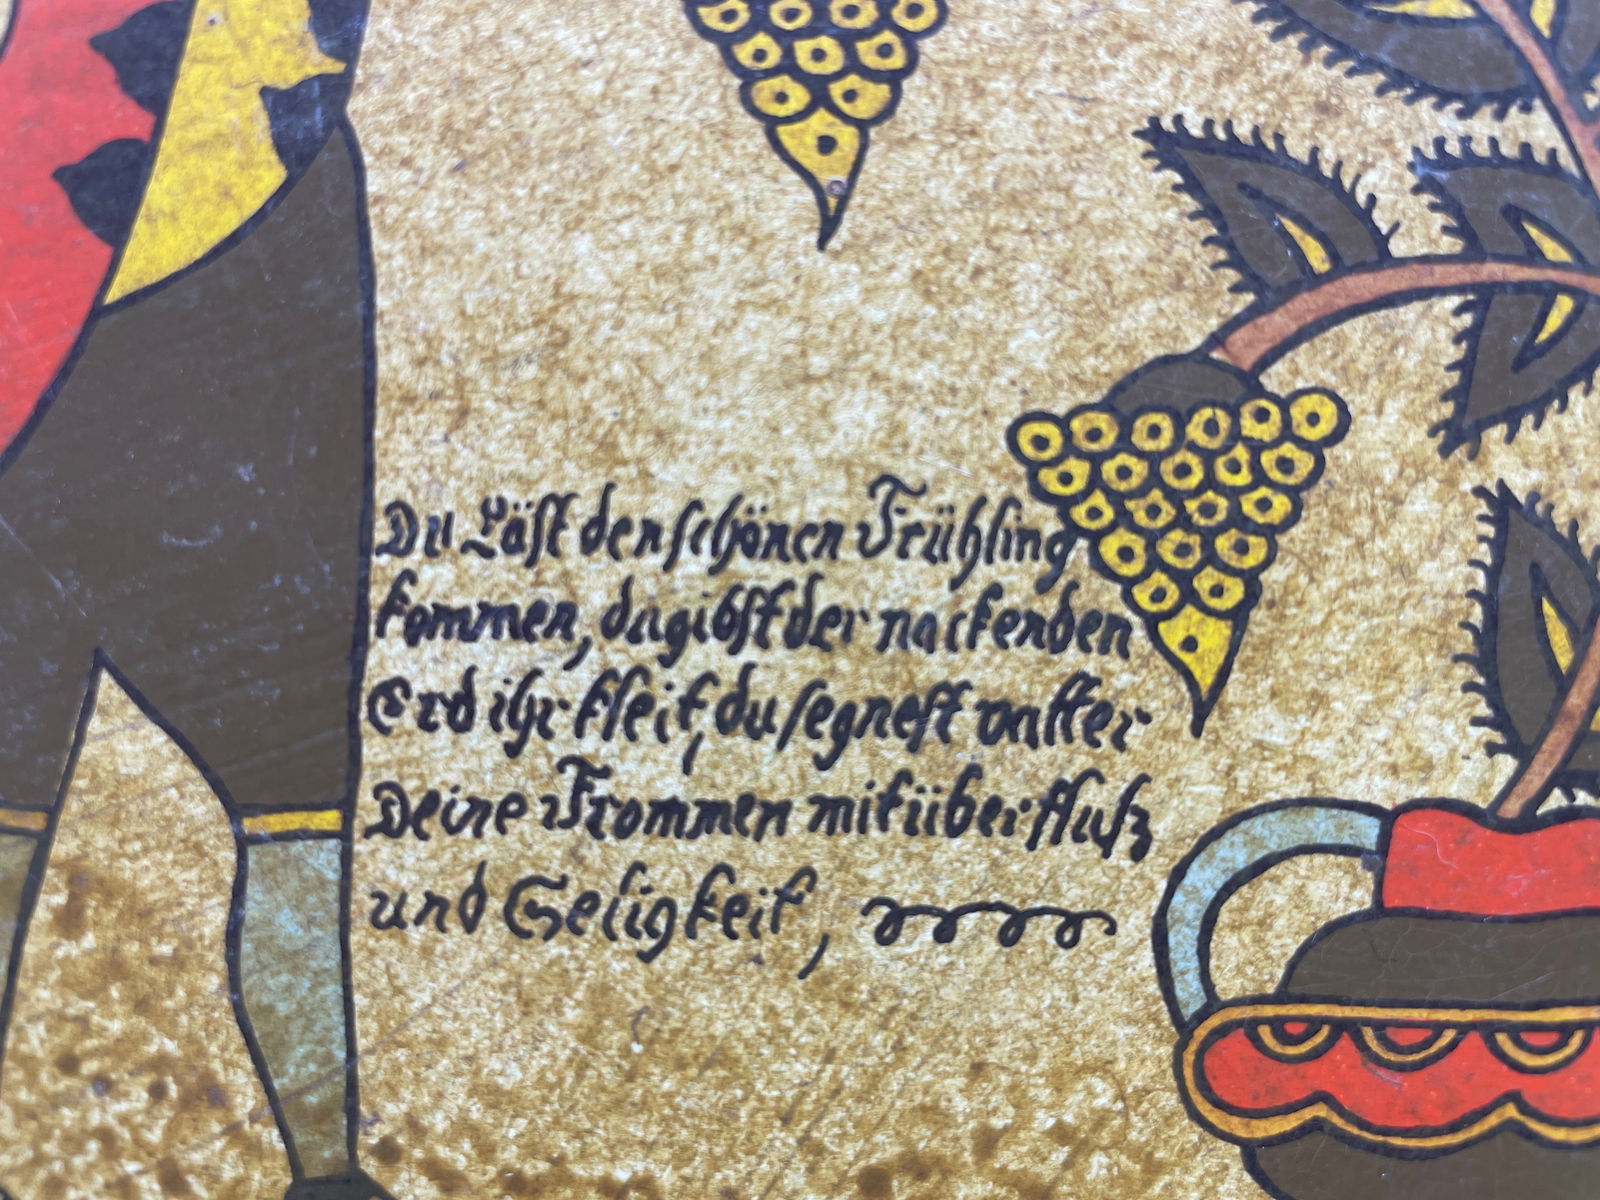 Du Läst den schönen Frühling
kommen, du gibst der nackenden
Erd ihr kleit, du segnest vatter
Deine Frommen mit überflusz
und Seligkeit,